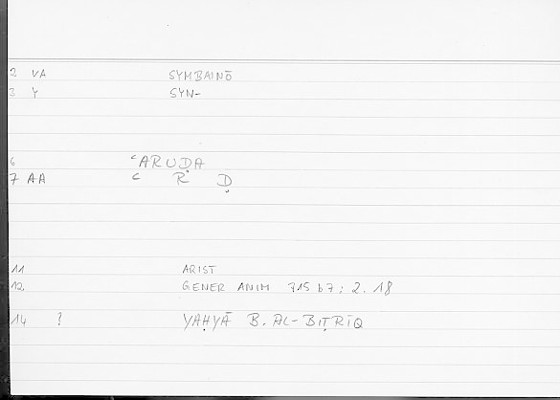 2 VA SYMBAINŌ
3 Y SYN-
6 ʿARUḌA
7 AA ʿ R Ḍ
11 ARIST
12. GENER ANIM 715 b7 : 2. 18
14 ? YAḤYĀ B. AL-BIṬRĪQ